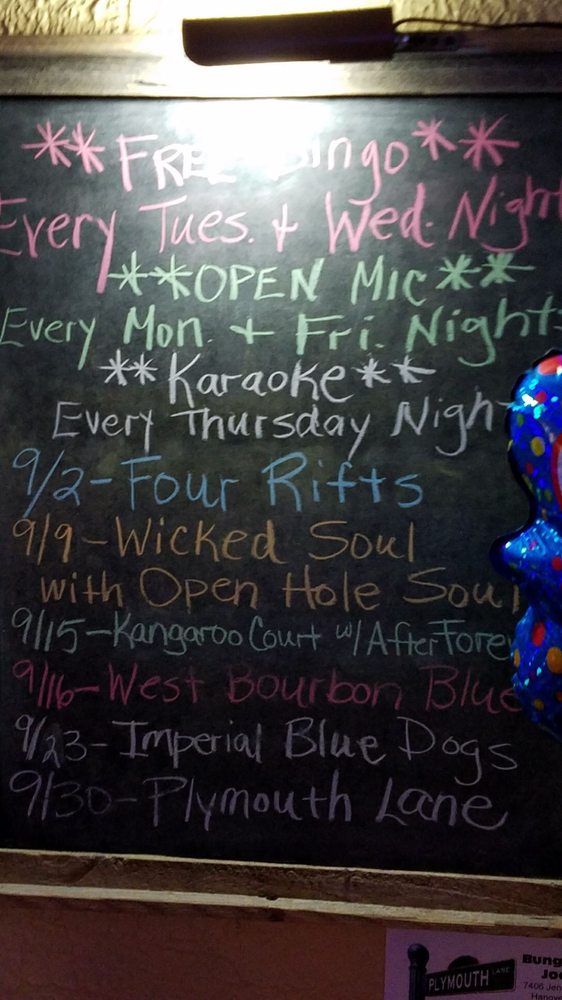 **FREE Bingo**
Every Tues. + Wed. Night
**OPEN MIC**
Every Mon. + Fri. Nights
**Karaoke**
Every Thursday Night
9/2-Four Rifts
9/9-Wicked Soul
with Open Hole Soul
9/15-Kangaroo Court w/AfterForev
9/16-West Bourbon Blue
9/23-Imperial Blue Dogs
9/30-Plymouth Lane
PLYMOUTH LANE
Bung
Joe
7406 Jen
Hanove